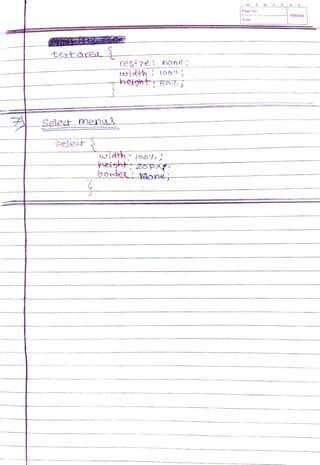 M T W T F S S
Page No.:
Date:
YOUVA
text area {
resize: none;
width: 100%;
height: 50%;
}
7) Select menus
select {
width: 100%;
height: 20px;
border: none;
}